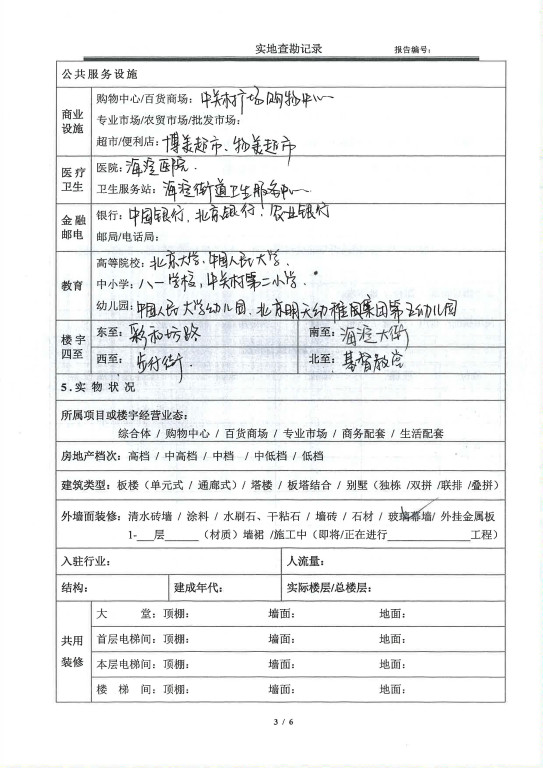 实地查勘记录 报告编号：
公共服务设施
商业设施
购物中心/百货商场：中关村广场购物中心
专业市场/农贸市场/批发市场：
超市/便利店：博美超市、物美超市
医疗卫生
医院：海淀医院.
卫生服务站：海淀街道卫生服务中心
金融邮电
银行：中国银行、北京银行、农业银行
邮局/电话局：
教育
高等院校：北京大学、中国人民大学.
中小学：八一学校，中关村第二小学.
幼儿园：中国人民大学幼儿园、北京明天幼稚园集团第五幼儿园
楼宇四至
东至：彩和坊路 南至：海淀大街
西至：步行街. 北至：基督教堂
5.实物状况
所属项目或楼宇经营业态：
综合体 / 购物中心 / 百货商场 / 专业市场 / 商务配套 / 生活配套
房地产档次：高档 / 中高档 / 中档 / 中低档 / 低档
建筑类型：板楼（单元式 / 通廊式）/ 塔楼 / 板塔结合 / 别墅（独栋 /双拼 /联排 /叠拼）
外墙面装修：清水砖墙 / 涂料 / 水刷石、干粘石 / 墙砖 / 石材 / 玻璃幕墙/ 外挂金属板
1-___层______（材质）墙裙 /施工中（即将/正在进行____________工程）
入驻行业： 人流量：
结构： 建成年代： 实际楼层/总楼层：
共用装修
大 堂：顶棚： 墙面： 地面：
首层电梯间：顶棚： 墙面： 地面：
本层电梯间：顶棚： 墙面： 地面：
楼 梯 间：顶棚： 墙面： 地面：
3 / 6